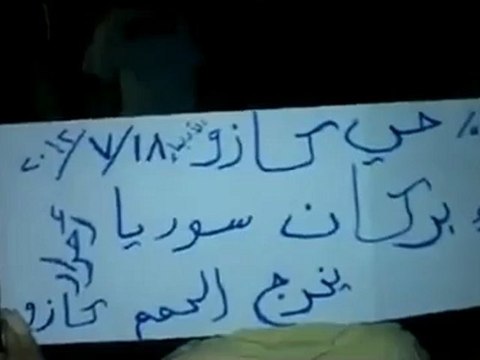 حي كازو الأربعاء ١٨/٧/٢٠١٢
بركان سوريا
يخرج الحمم أحرار كازو